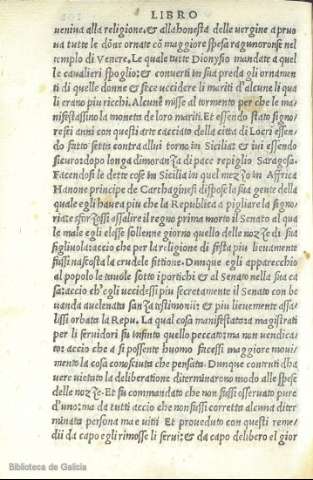 LIBRO
uenina alla religione, & alla honesta delle uergine apruo
ua tutte le dõne ornate cõ maggiore spesa ragunoronsi nel
templo di Venere. Le quale tutte Dionysio mandate a quel
le cavalieri spoglio: & conuerti in sua preda gli ornamen
ti di quelle donne & fece uccidere li mariti d'alcune li qua
li erano piu ricchi. Alcune misse al tormento per che le ma
nifestassino la moneta de loro mariti. Et essendo stato signo
re sei anni con questi arte cacciato della citta di Locri essen
do fatto setta contra allui torno in Sicilia: & iui essendo
sicuro dopo longa dimoranza di pace repiglio Saragosa.
Facendosi le dette cose in Sicilia in quel mezo in Affrica
Hanone principe de Carthaginesi dispose la sua gente della
quale egli hauea piu che la Republica a pigliare la signo
ria: e sforzossi assalire il regno prima morto il Senato al qua
le male egli elesse sollenne giorno quello delle nozze di sua
figliuola: accio che per la religione di festa piu lieuamente
fussi nascosta la crudele fittione. Dunque egli apparecchio
al popolo le tauole sotto i portichi & al Senato nella sua ca
sa: accio ch'egli uccidessi piu secretamente il Senato con be
uanda auelenata sanza testimonii: & piu lieuemente assa
lissi orbata la Repu. La qual cosa manifestato: a magistrati
per li seruidori fu infinto quello peccato: ma non uendica
to: accio che a si possente huomo facessi maggiore moui
mento la cosa conosciuta che pensata. Dunque contriti d'ha
uere uietato la deliberatione diterminarono modo alle spese
delle nozze. Et fu commandato che non fussi osseruato pure
d'uno: ma da tutti accio che non fussi corretto alcuna diter
minata persona ma e uitii. Et proueduto con questi reme
dii da capo egli rimosse li serui: & da capo delibero el gior
Biblioteca de Galicia